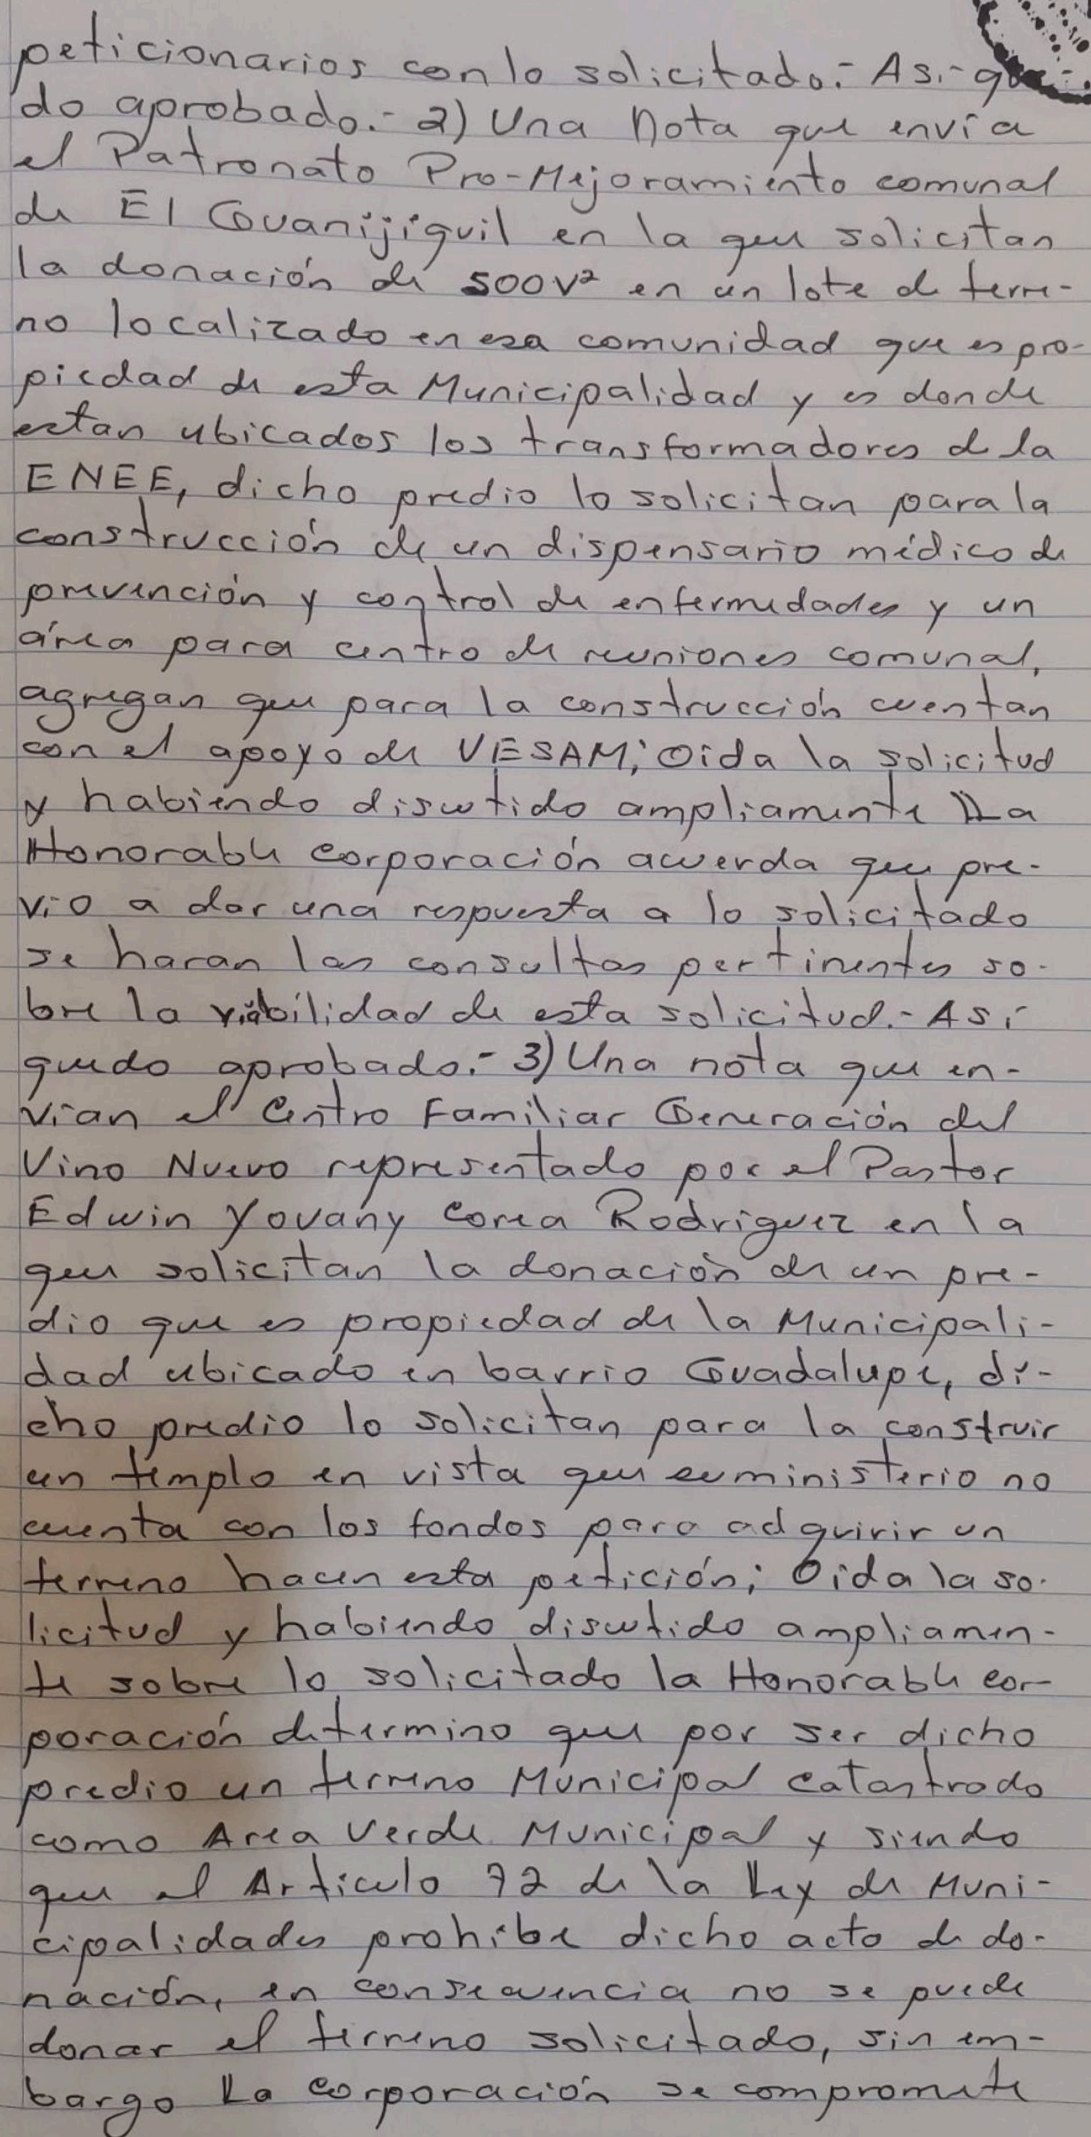 peticionarios con lo solicitado.- Asi- que
do aprobado.- 2) Una Nota que envía
el Patronato Pro-Mejoramiento comunal
de El Guanijiquil en la que solicitan
la donación de 500V² en un lote de terre-
no localizado en esa comunidad que es pro-
piedad de esta Municipalidad y es donde
estan ubicados los transformadores de la
ENEE, dicho predio lo solicitan para la
construcción de un dispensario médico de
prevención y control de enfermedades y un
área para centro de reuniones comunal,
agregan que para la construcción cuentan
con el apoyo de VESAM; Oida la solicitud
y habiendo discutido ampliamente La
Honorable Corporación acuerda que pre-
vio a dar una respuesta a lo solicitado
se haran las consultas pertinentes so-
bre la viabilidad de esta solicitud.- Así
quedo aprobado.- 3) Una nota que en-
vían el Centro Familiar Generación del
Vino Nuevo representado por el Pastor
Edwin Yovany Corea Rodriguez en la
que solicitan la donación de un pre-
dio que es propiedad de la Municipali-
dad ubicado en barrio Guadalupe, di-
cho predio lo solicitan para la construir
un templo en vista que su ministerio no
cuenta con los fondos para adquirir un
terreno hacen esta petición; Oida la so-
licitud y habiendo discutido ampliamen-
te sobre lo solicitado la Honorable Cor-
poración determino que por ser dicho
predio un terreno Municipal catastrado
como Area Verde Municipal y siendo
que el Articulo 72 de la Ley de Muni-
cipalidades prohibe dicho acto de do-
nación, en consecuencia no se puede
donar el terreno solicitado, sin em-
bargo La Corporación se compromete